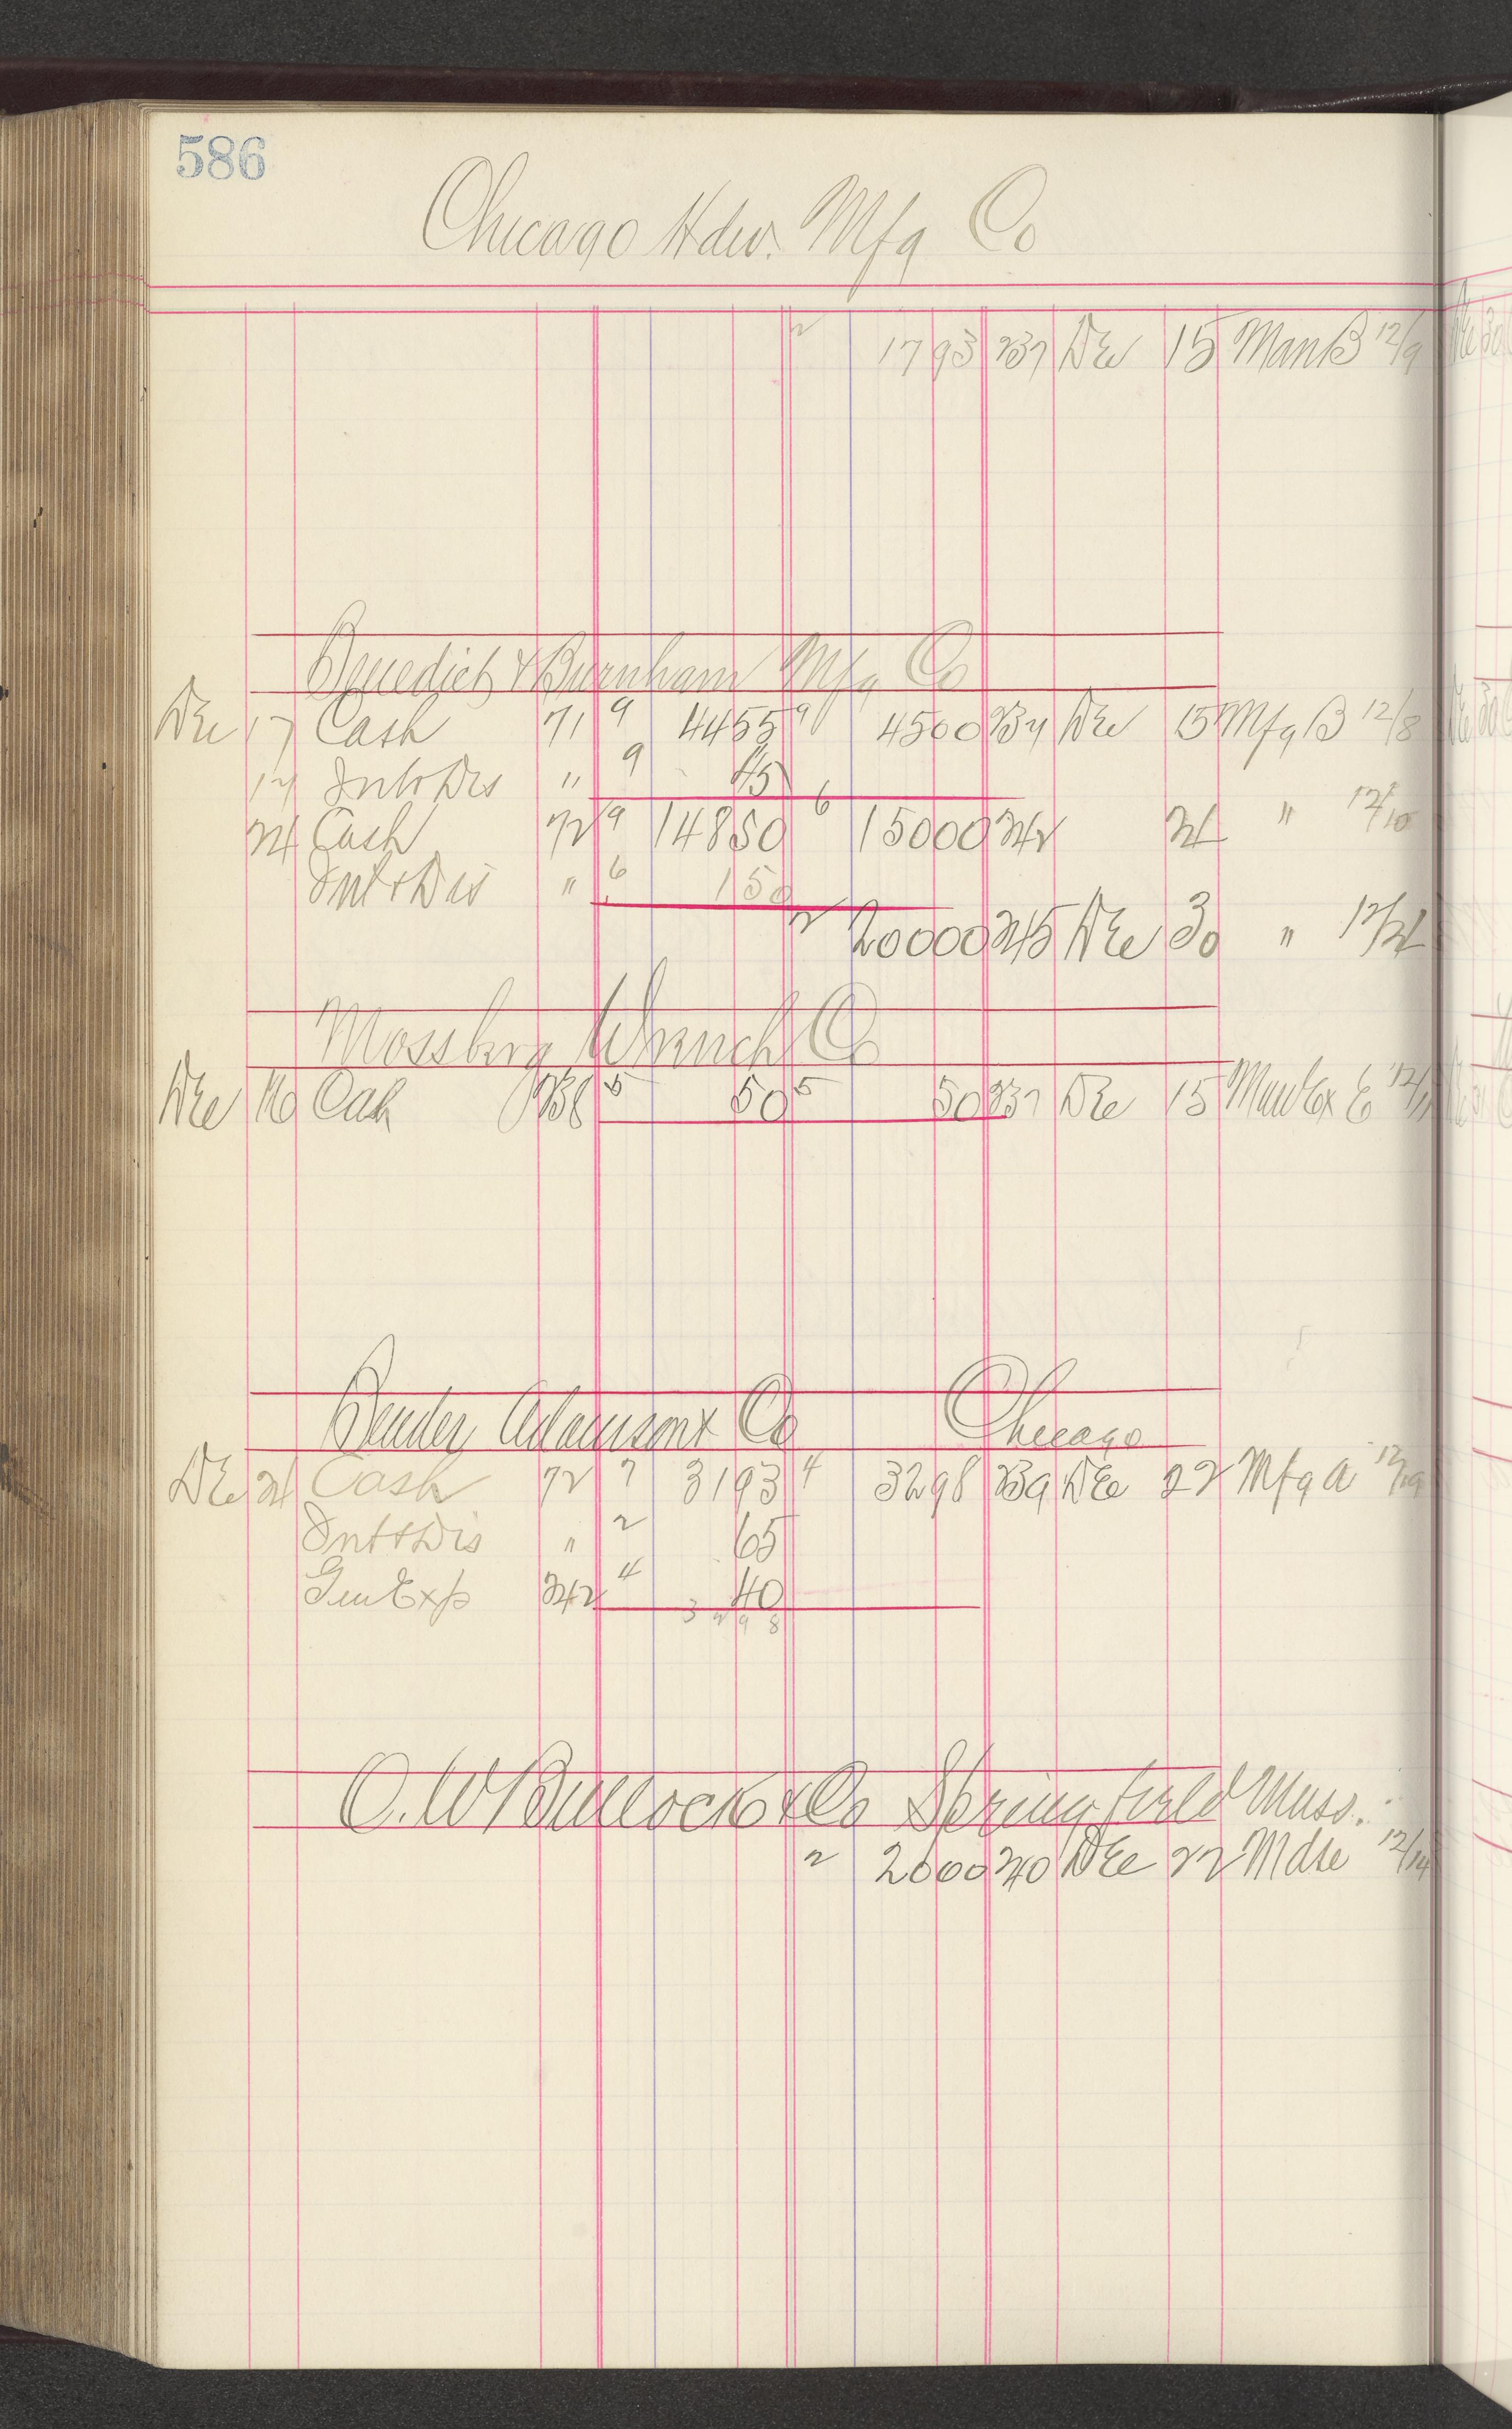 586
Chicago Hdw. Mfg Co
2 1793 237 Dec 15 Man B 12/9
Benedict & Burnham Mfg Co
Dec 17 Cash 71 9 4455 9 4500 234 Dec 15 Mfg B 12/8
17 Int & Dis " 9 45
24 Cash 72 9 14850 6 15000 242 24 " 12/10
Int & Dis " 6 150
2 20000 245 Dec 30 " 12/24
Mossberg Wrench Co
Dec 16 Cash 5 50 5 50 237 Dec 15 Man Ex E
Bender Adamson & Co Chicago
Dec 24 Cash 72 7 3193 4 3298 239 Dec 22 Mfg A 12/19
Int & Dis " 2 65
Gen Exp 242 4 40
3298
O. W. Bullock & Co Springfield Mass.
2 2000 240 Dec 22 Mdse 12/14